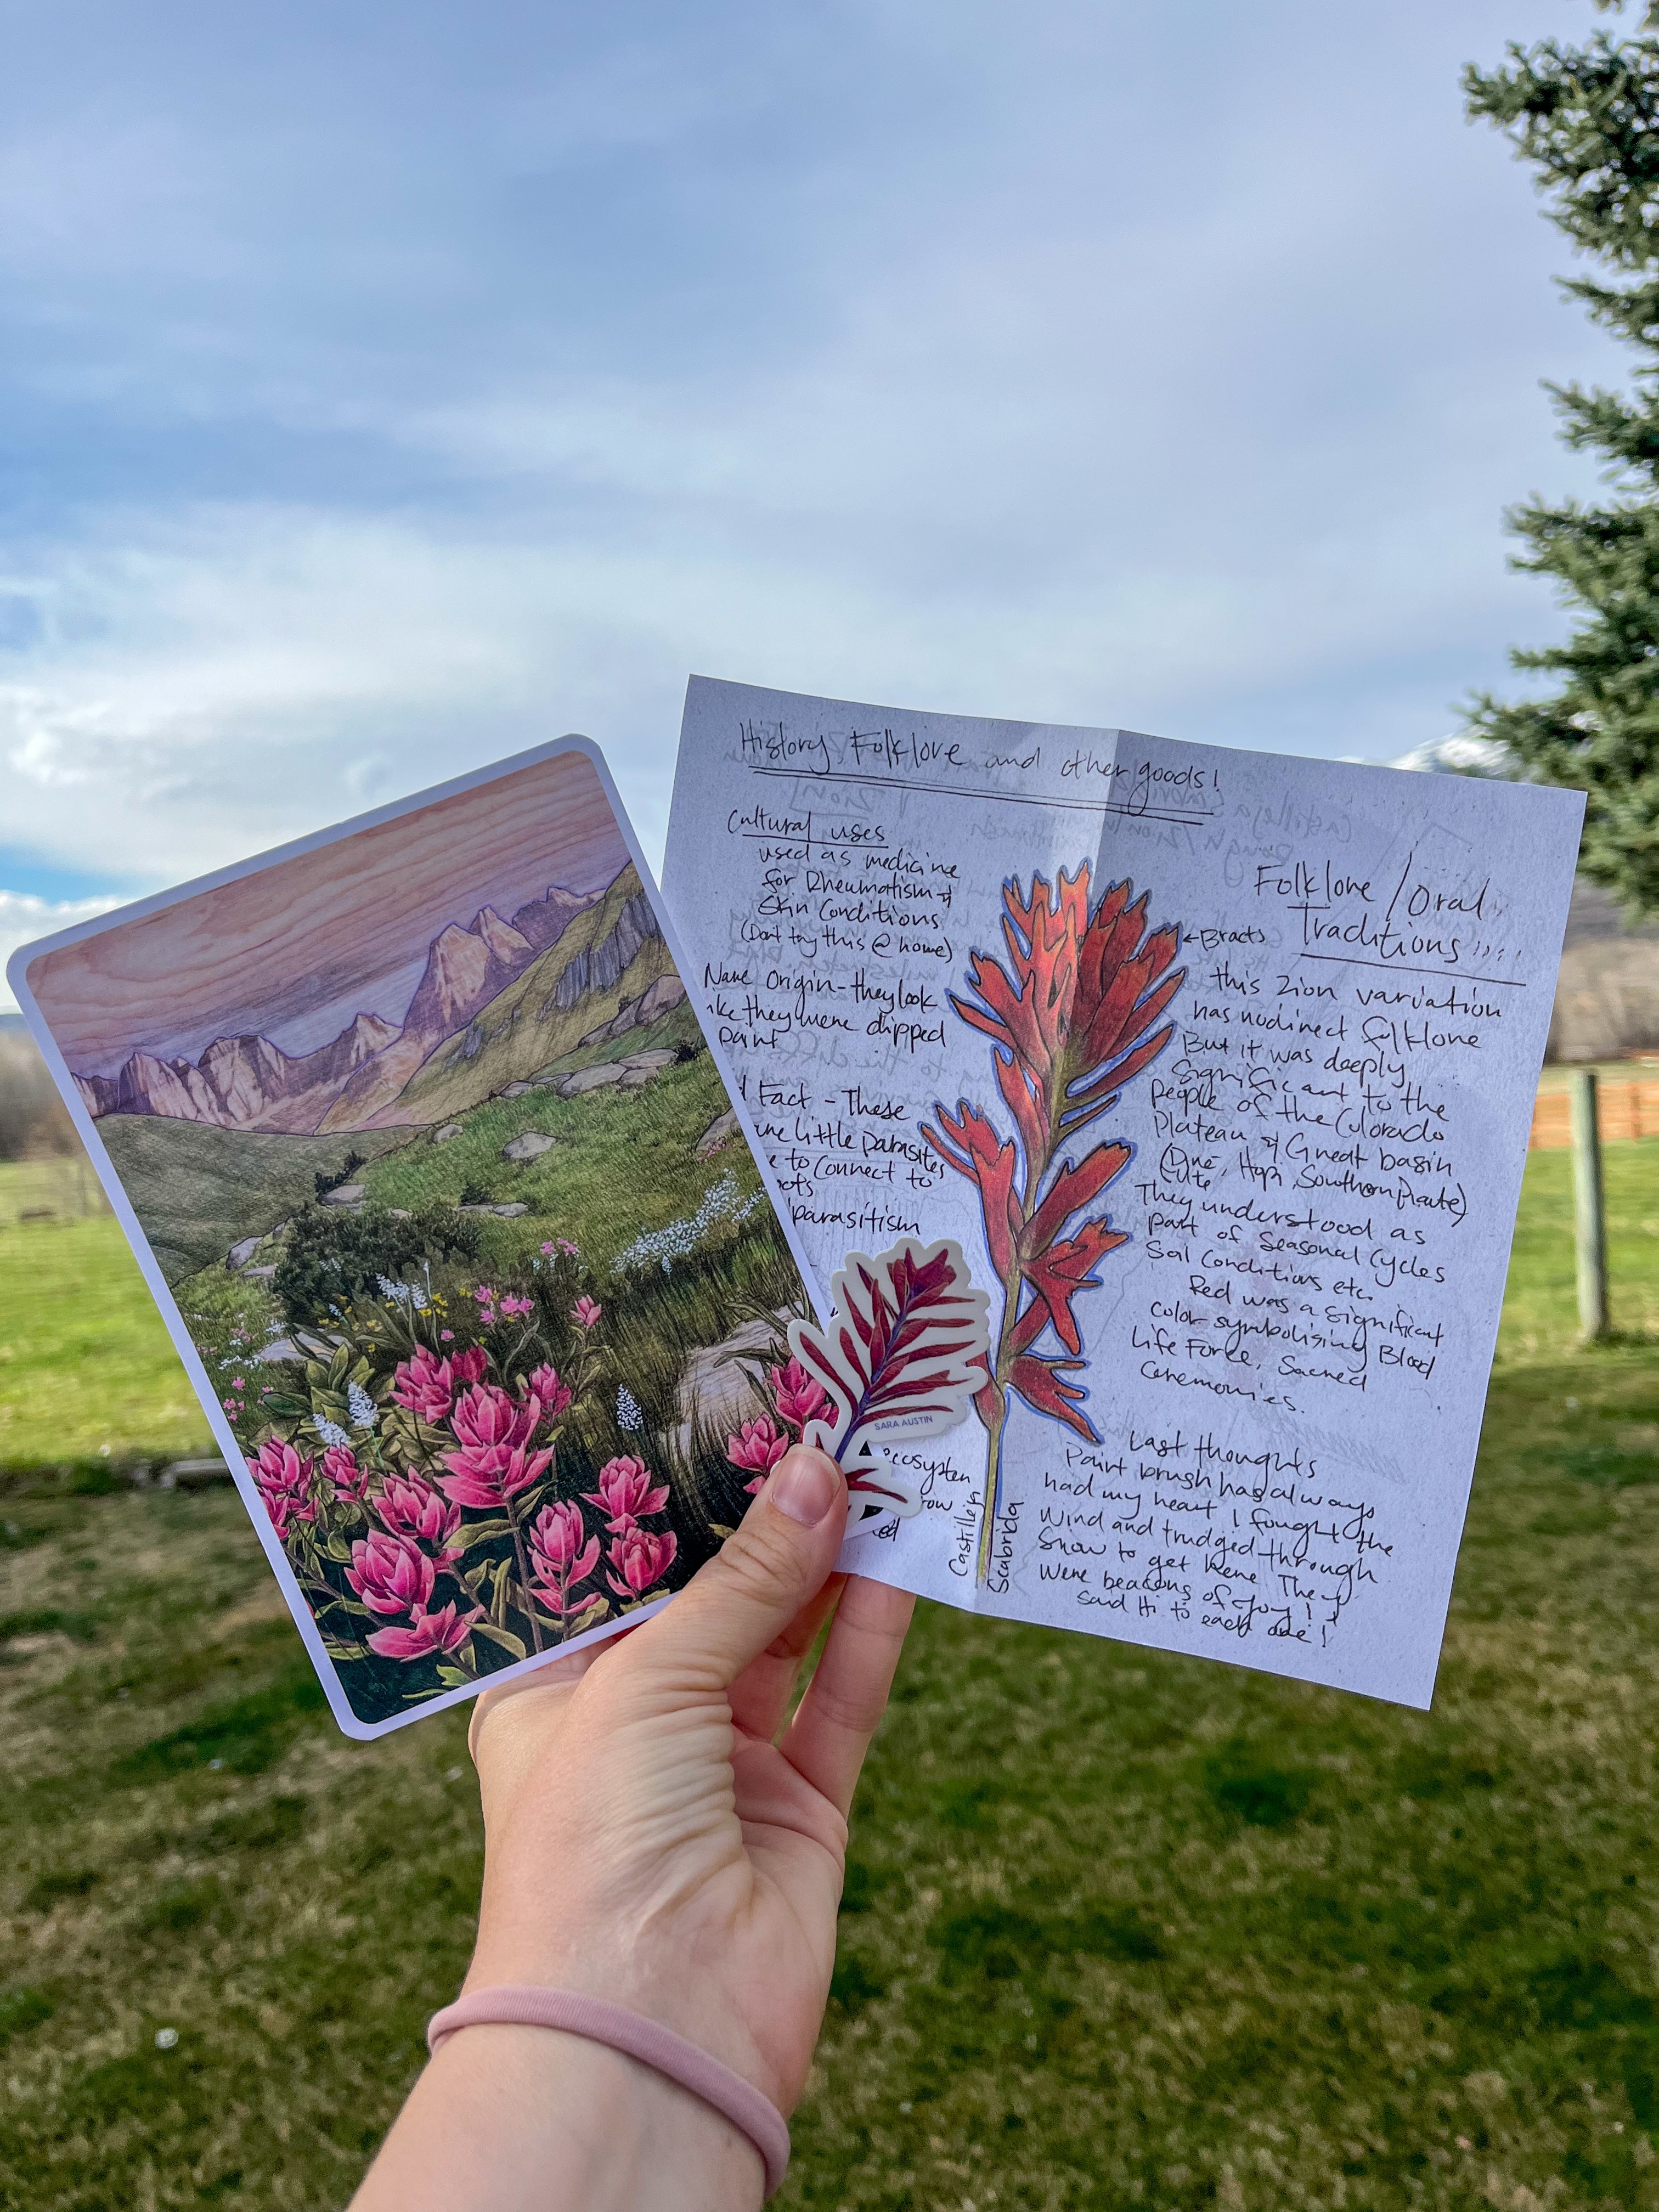 History Folklore and other goods!
Cultural uses
used as medicine
for Rheumatism &
Skin Conditions
(Dont try this @ home)
Name Origin - they look
like they were dipped
paint
Fact - These
little parasites
to Connect to
parasitism
ecosystem
SARA AUSTIN
Castilleja
Scabrida
← Bracts
Folklore / Oral
Traditions
this Zion variation
has no direct folklore
But it was deeply
significant to the
People of the Colorado
Plateau & Great basin
(Dine, Hopi, Southern Paiute)
Ute
They understood as
part of seasonal Cycles
Soil Conditions etc.
Red was a significant
color symbolising Blood
Life Force, Sacred
Ceremonies.
Last thoughts
Paint brush has always
had my heart I fought the
wind and trudged through
Snow to get here They
were beacons of Joy! I
said Hi to each one!